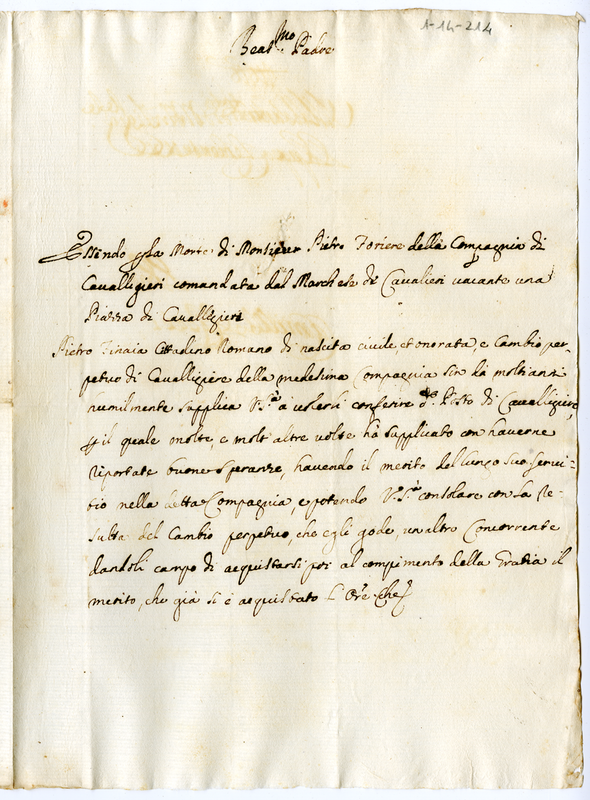 1-14-214
Beat.mo Padre
Essendo p la Morte di Monsieur Pietro Foriere della Compagnia di
Cavallegieri comandata dal Marchese de Cavalieri vacante una
Piazza di Cavallegieri
Pietro Tinaia Cittadino Romano di nascita civile, et onorata, e Cambio per-
petuo di Cavallegiere della medesima Compagnia sin da molti anni
humilmente supplica V. S.tà à volersi conferire d.o Posto di Cavallegiere,
p il quale molte, e molt altre volte hà supplicato con haverne
riportate buone speranze, havendo il merito del lungo suo servi-
tio nella detta Compagnia, e potendo V. S.tà consolare con la Re-
sulta del Cambio perpetuo, che egli gode, un altro Concorrente
dandoli campo di acquistarsi poi al compimento della Gratia il
merito, che già si è acquistato l'Ore Che